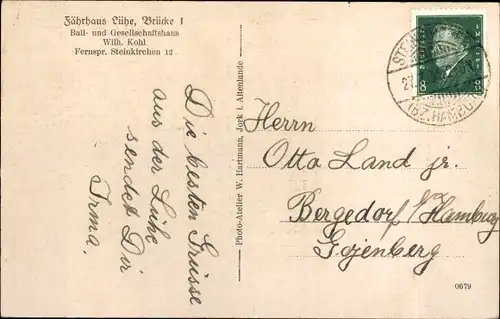 Fährhaus Lühe, Brücke 1
Ball- und Gesellschaftshaus
Wilh. Kohl
Fernspr. Steinkirchen 12
Die besten Grüsse
aus der Lühe
sendet Dir
Irma.
Photo-Atelier W. Hartmann, Jork i. Altenlande
8 8
27.
(BZ. HAMBG
Herrn
Otto Land jr.
Bergedorf b/Hamburg
Gojenberg
0679